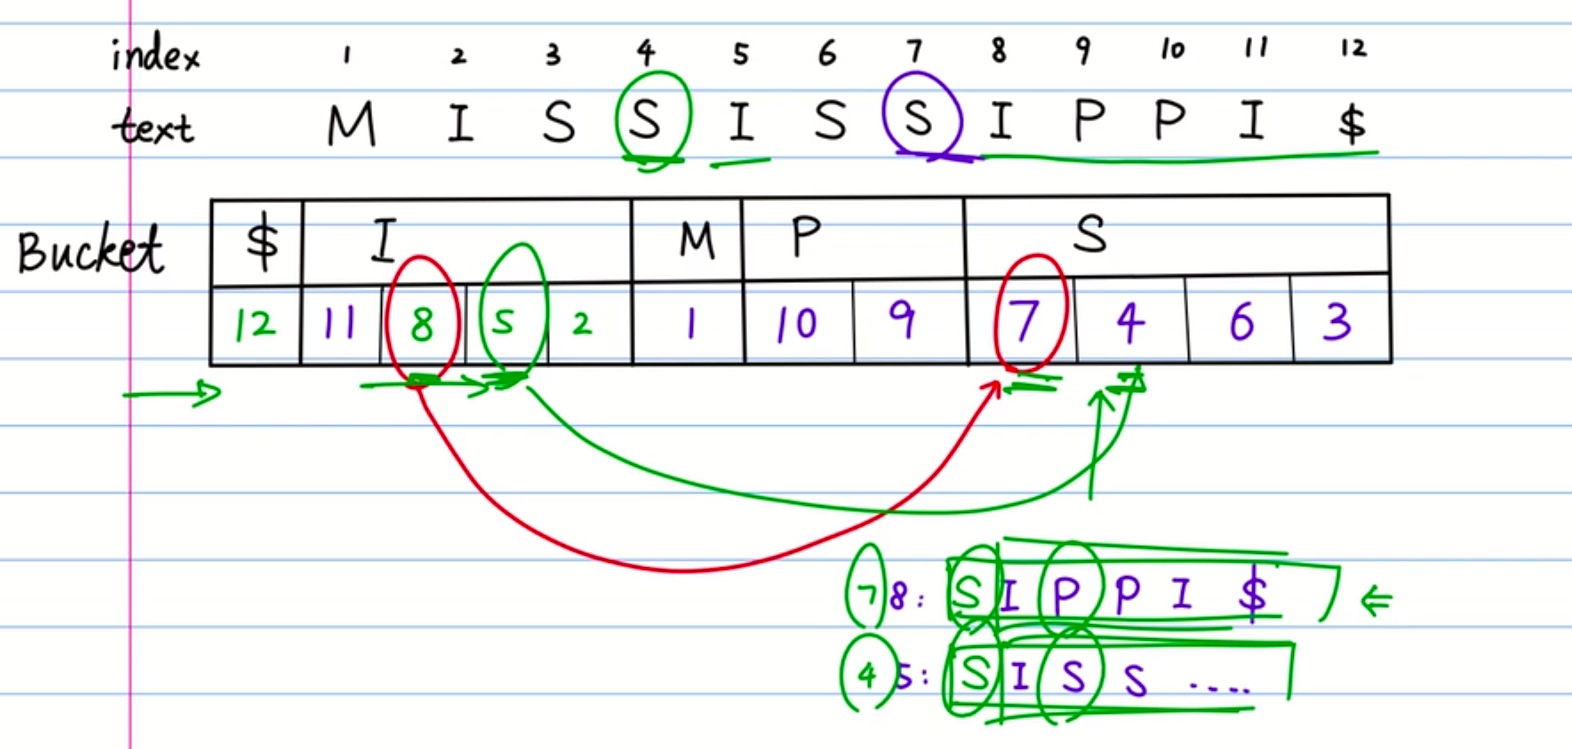 index 1 2 3 4 5 6 7 8 9 10 11 12
text M I S S I S S I P P I $
Bucket $ I M P S
12 11 8 5 2 1 10 9 7 4 6 3
7 8: S I P P I $
4 5: S I S S ....